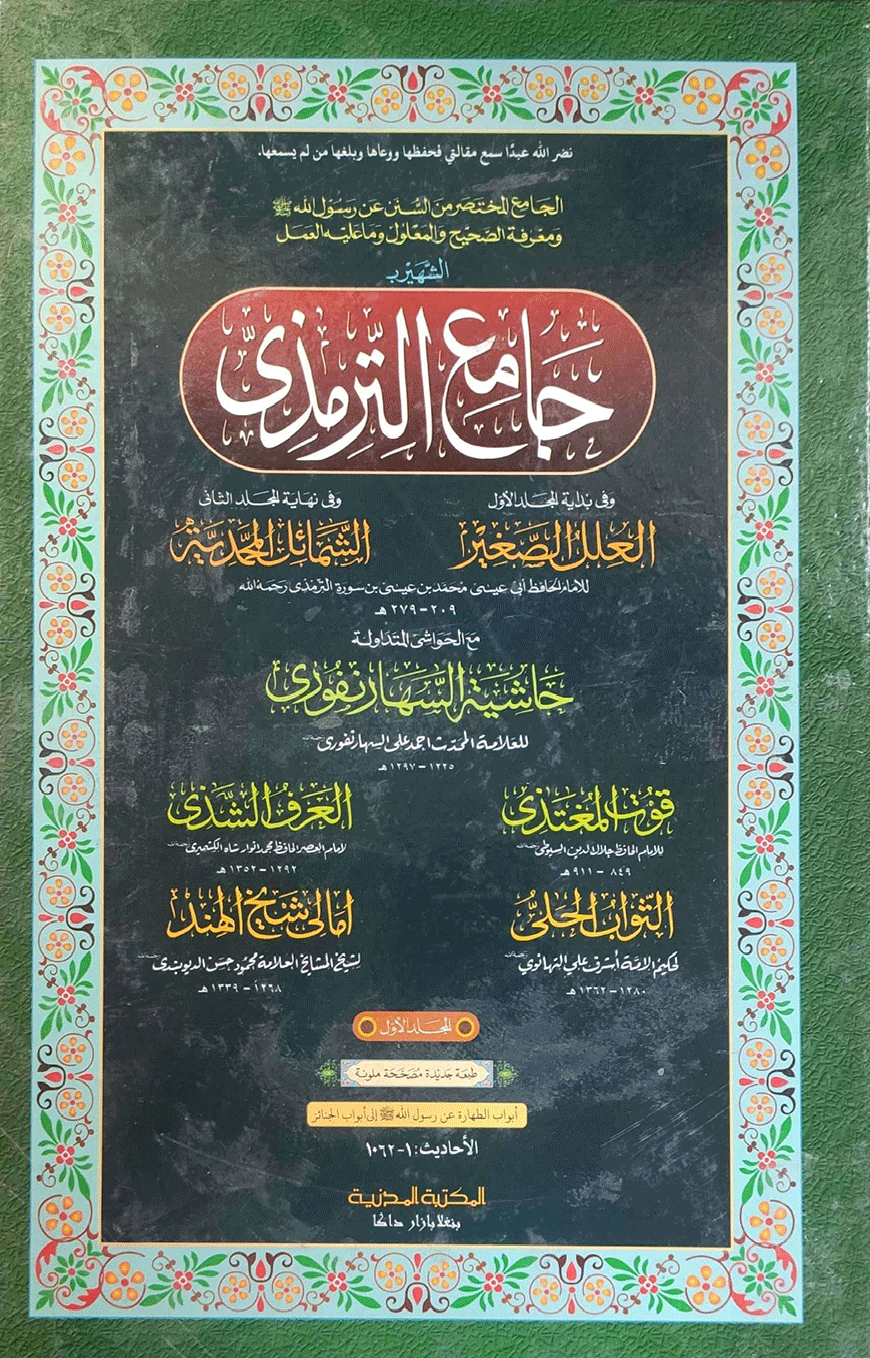 نضر الله عبدًا سمع مقالتي فحفظها ووعاها وبلغها من لم يسمعها.
الجامع المختصر من السنن عن رسول الله ﷺ
ومعرفة الصحيح والمعلول وما عليه العمل
الشهير ب
جَامِع التِّرمِذِی
وفی بداية المجلد الأول
العلل الصغير
وفی نهاية المجلد الثانی
الشَّمائل المحمدية
للامام الحافظ أبی عيسی محمد بن عيسی بن سورة الترمذی رحمه الله
٢٠٩ – ٢٧٩ هـ
مع الحواشی المتداولة
حاشية السهارنفوری
للعلامة المحدث احمد علی السهارنفوری
١٢٢٥ – ١٢٩٧ هـ
قوت المغتذی
للامام الحافظ جلال الدين السيوطی
٨٤٩ – ٩١١ هـ
العرف الشذی
لامام العصر الحافظ محمد انوار شاه الكشميری
١٢٩٢ – ١٣٥٢ هـ
الثواب الحلی
لحكيم الامة أشرف علي التهانوي
١٢٨٠ – ١٣٦٢ هـ
امالی شيخ الهند
لشيخ المشايخ العلامة محمود حسن الديوبندی
١٢٦٨ – ١٣٣٩ هـ
المجلد الأول
طبعة جديدة مصححة ملونة
أبواب الطهارة عن رسول الله ﷺ إلى أبواب الجنائز
الأحاديث: ١-١٠٦٢
المكتبة المدنية
بنغلا بازار داكا